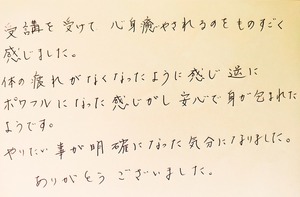 受講を受けて 心身癒やされるのをものすごく
感じました。
体の疲れがなくなったように感じ 逆に
ポワフルになった感じがし 安心で身が包まれた
ようです。
やりたい事が明確になった気分になりました。
ありがとうございました。